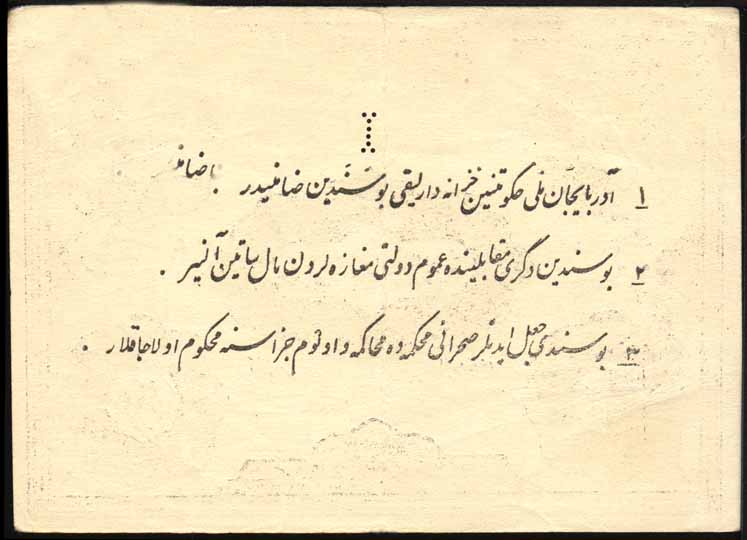 ۱ آذربایجان ملی حکومتنین خزانه داریلقی بو سَنَدین ضامنیدر
۲ بو سندین دگری مقابلینده عموم دولتی مغازه لردن مال ساتین آلنیر .
۳ بو سندی جعل ایدنلر صحرائی محکمه ده محاکمه و اولوم جزاسنه محکوم اولاجاقلار .